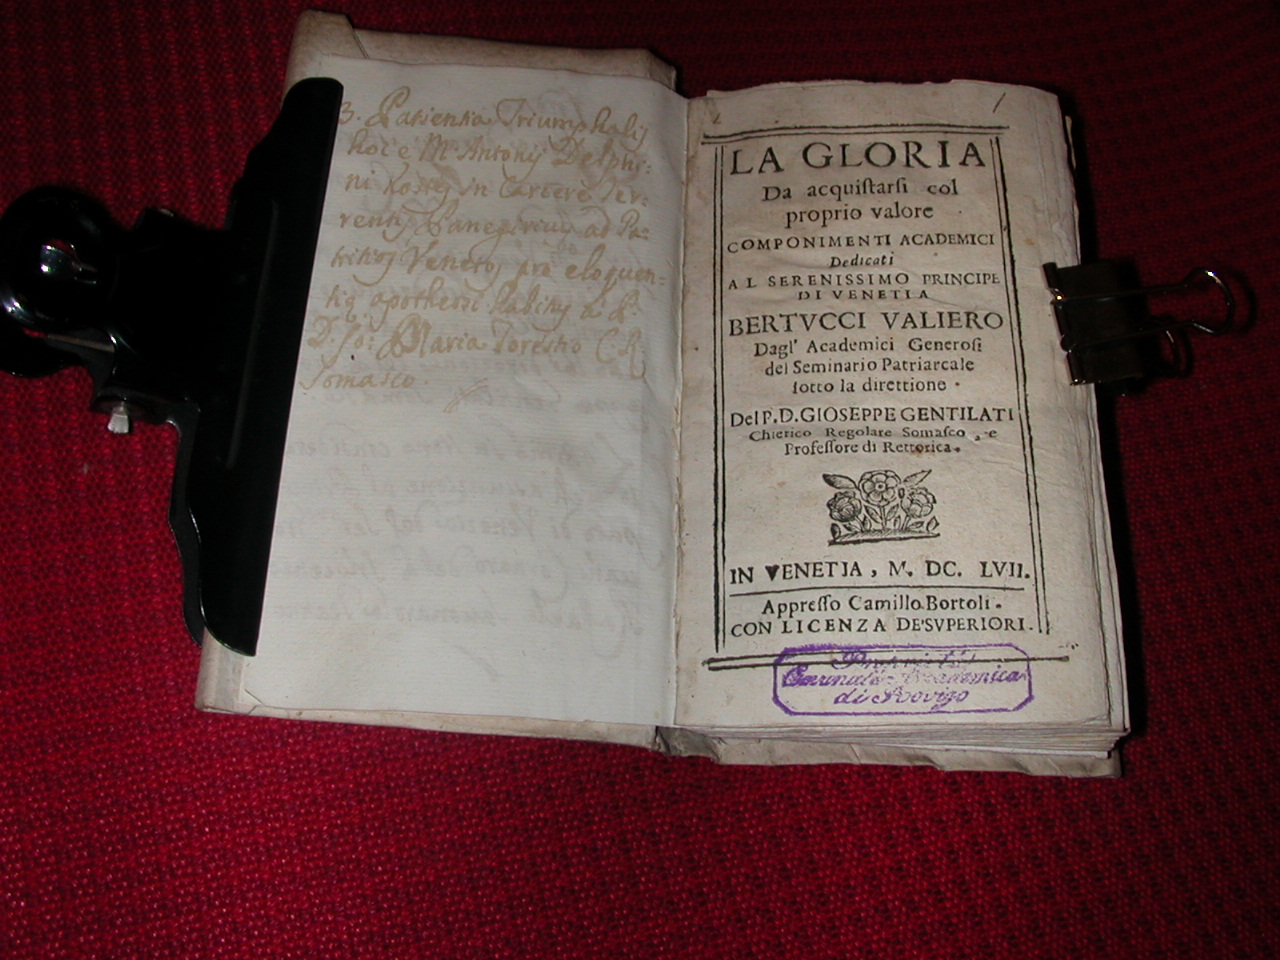 3. Patientia Triumphalis
hoc e M. Antonij Delphi-
ni in Carcere Ter-
rentis Panegiricus ad Pa-
tritios Venetos pro eloquen-
tiæ
D. Jo: Maria C. R.
Somasco.
1
LA GLORIA
Da acquiſtarſi col
proprio valore
COMPONIMENTI ACADEMICI
Dedicati
AL SERENISSIMO PRINCIPE
DI VENETIA
BERTVCCI VALIERO
Dagl' Academici Generoſi
del Seminario Patriarcale
ſotto la direttione.
Del P. D. GIOSEPPE GENTILATI
Chierico Regolare Somaſco, e
Profeſſore di Rettorica.
IN VENETIA, M. DC. LVII.
Appreſſo Camillo Bortoli.
CON LICENZA DE'SVPERIORI.
Comunale Accademica
di Rovigo